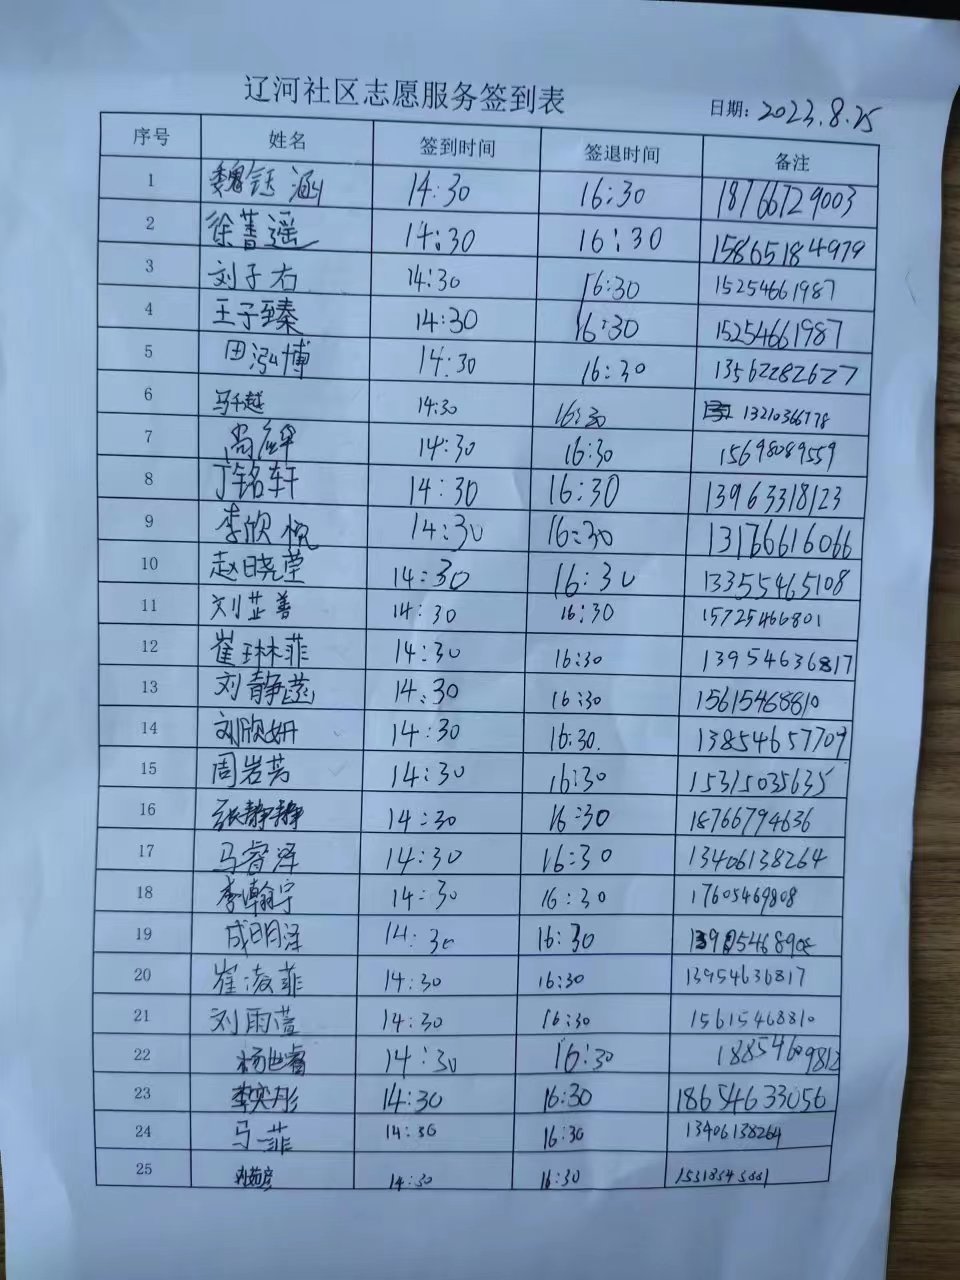 辽河社区志愿服务签到表
日期: 2023.8.25
序号 姓名 签到时间 签退时间 备注
1 魏钰涵 14:30 16:30 18766729003
2 徐菁遥 14:30 16:30 15865184979
3 刘子右 14:30 16:30 15254661987
4 王子臻 14:30 16:30 15254661987
5 田泓博 14:30 16:30 13562282627
6 马千越 14:30 16:30 13210366778
7 尚 14:30 16:30 15698089559
8 丁铭轩 14:30 16:30 13963318123
9 李欣悦 14:30 16:30 13176616066
10 赵晓莹 14:30 16:30 13355465108
11 刘芷善 14:30 16:30 15725466801
12 崔琳菲 14:30 16:30 13954636817
13 刘静蕊 14:30 16:30 15615468810
14 刘欣妍 14:30 16:30. 13854657709
15 周岩芳 14:30 16:30 15315035635
16 张静静 14:30 16:30 18766794636
17 马睿泽 14:30 16:30 13406138264
18 李瀚宇 14:30 16:30 17605469808
19 成明泽 14:30 16:30
20 崔凌菲 14:30 16:30 13954636817
21 刘雨萱 14:30 16:30 15615468810
22 杨世睿 14:30 16:30 18854609812
23 李奕彤 14:30 16:30 18654633056
24 马一菲 14:30 16:30 13406138264
25 14:30 16:30